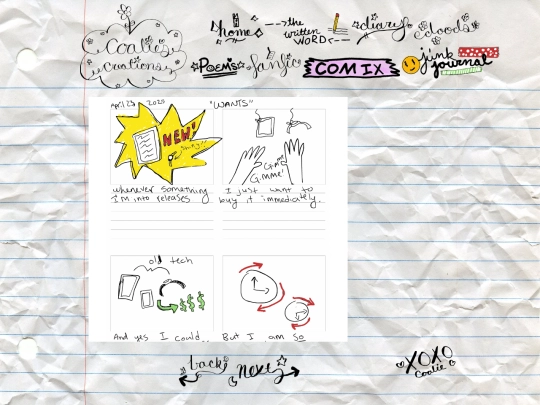 Coalie's
Creations
home
the written WORD
diary
doods
POEMS
fanfic
COMIX
junk journal
April 29 2025
"WANTS"
NEW!
shiny!!
Gimme
Gimme!
whenever something
I'm into releases
I just want to
buy it immediately.
old tech
$$$
And yes I could..
But I am so
back
next
XOXO
Coalie